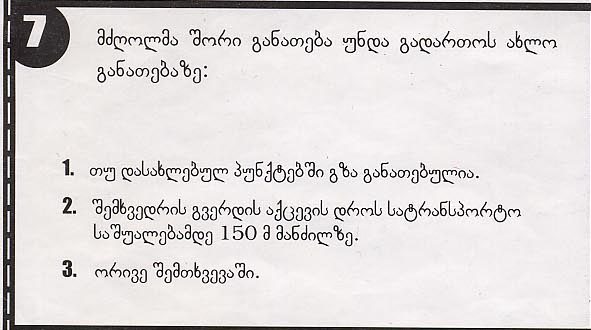 7
მძღოლმა შორი განათება უნდა გადართოს ახლო
განათებაზე:
1. თუ დასახლებულ პუნქტებში გზა განათებულია.
2. შემხვედრის გვერდის აქცევის დროს სატრანსპორტო
საშუალებამდე 150 მ მანძილზე.
3. ორივე შემთხვევაში.